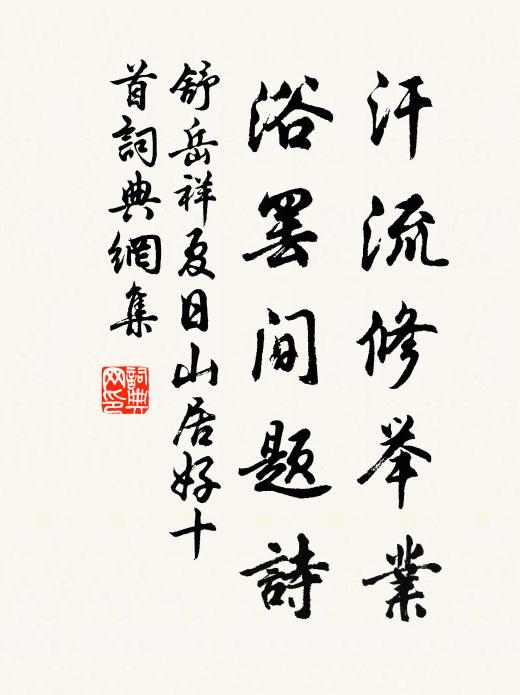 汗流修举業
浴罢间題詩
舒岳祥夏日山居好十
首詞典網集
詞典
网印